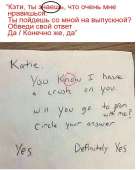 "Кэти, ты знаешь, что очень мне
нравишься.
Ты пойдешь со мной на выпускной?
Обведи свой ответ
Да / Конечно же, да"
Katie,
You know I have
a crush on you.
will you go to prom
with me?
Circle your answer
Yes Definitely Yes